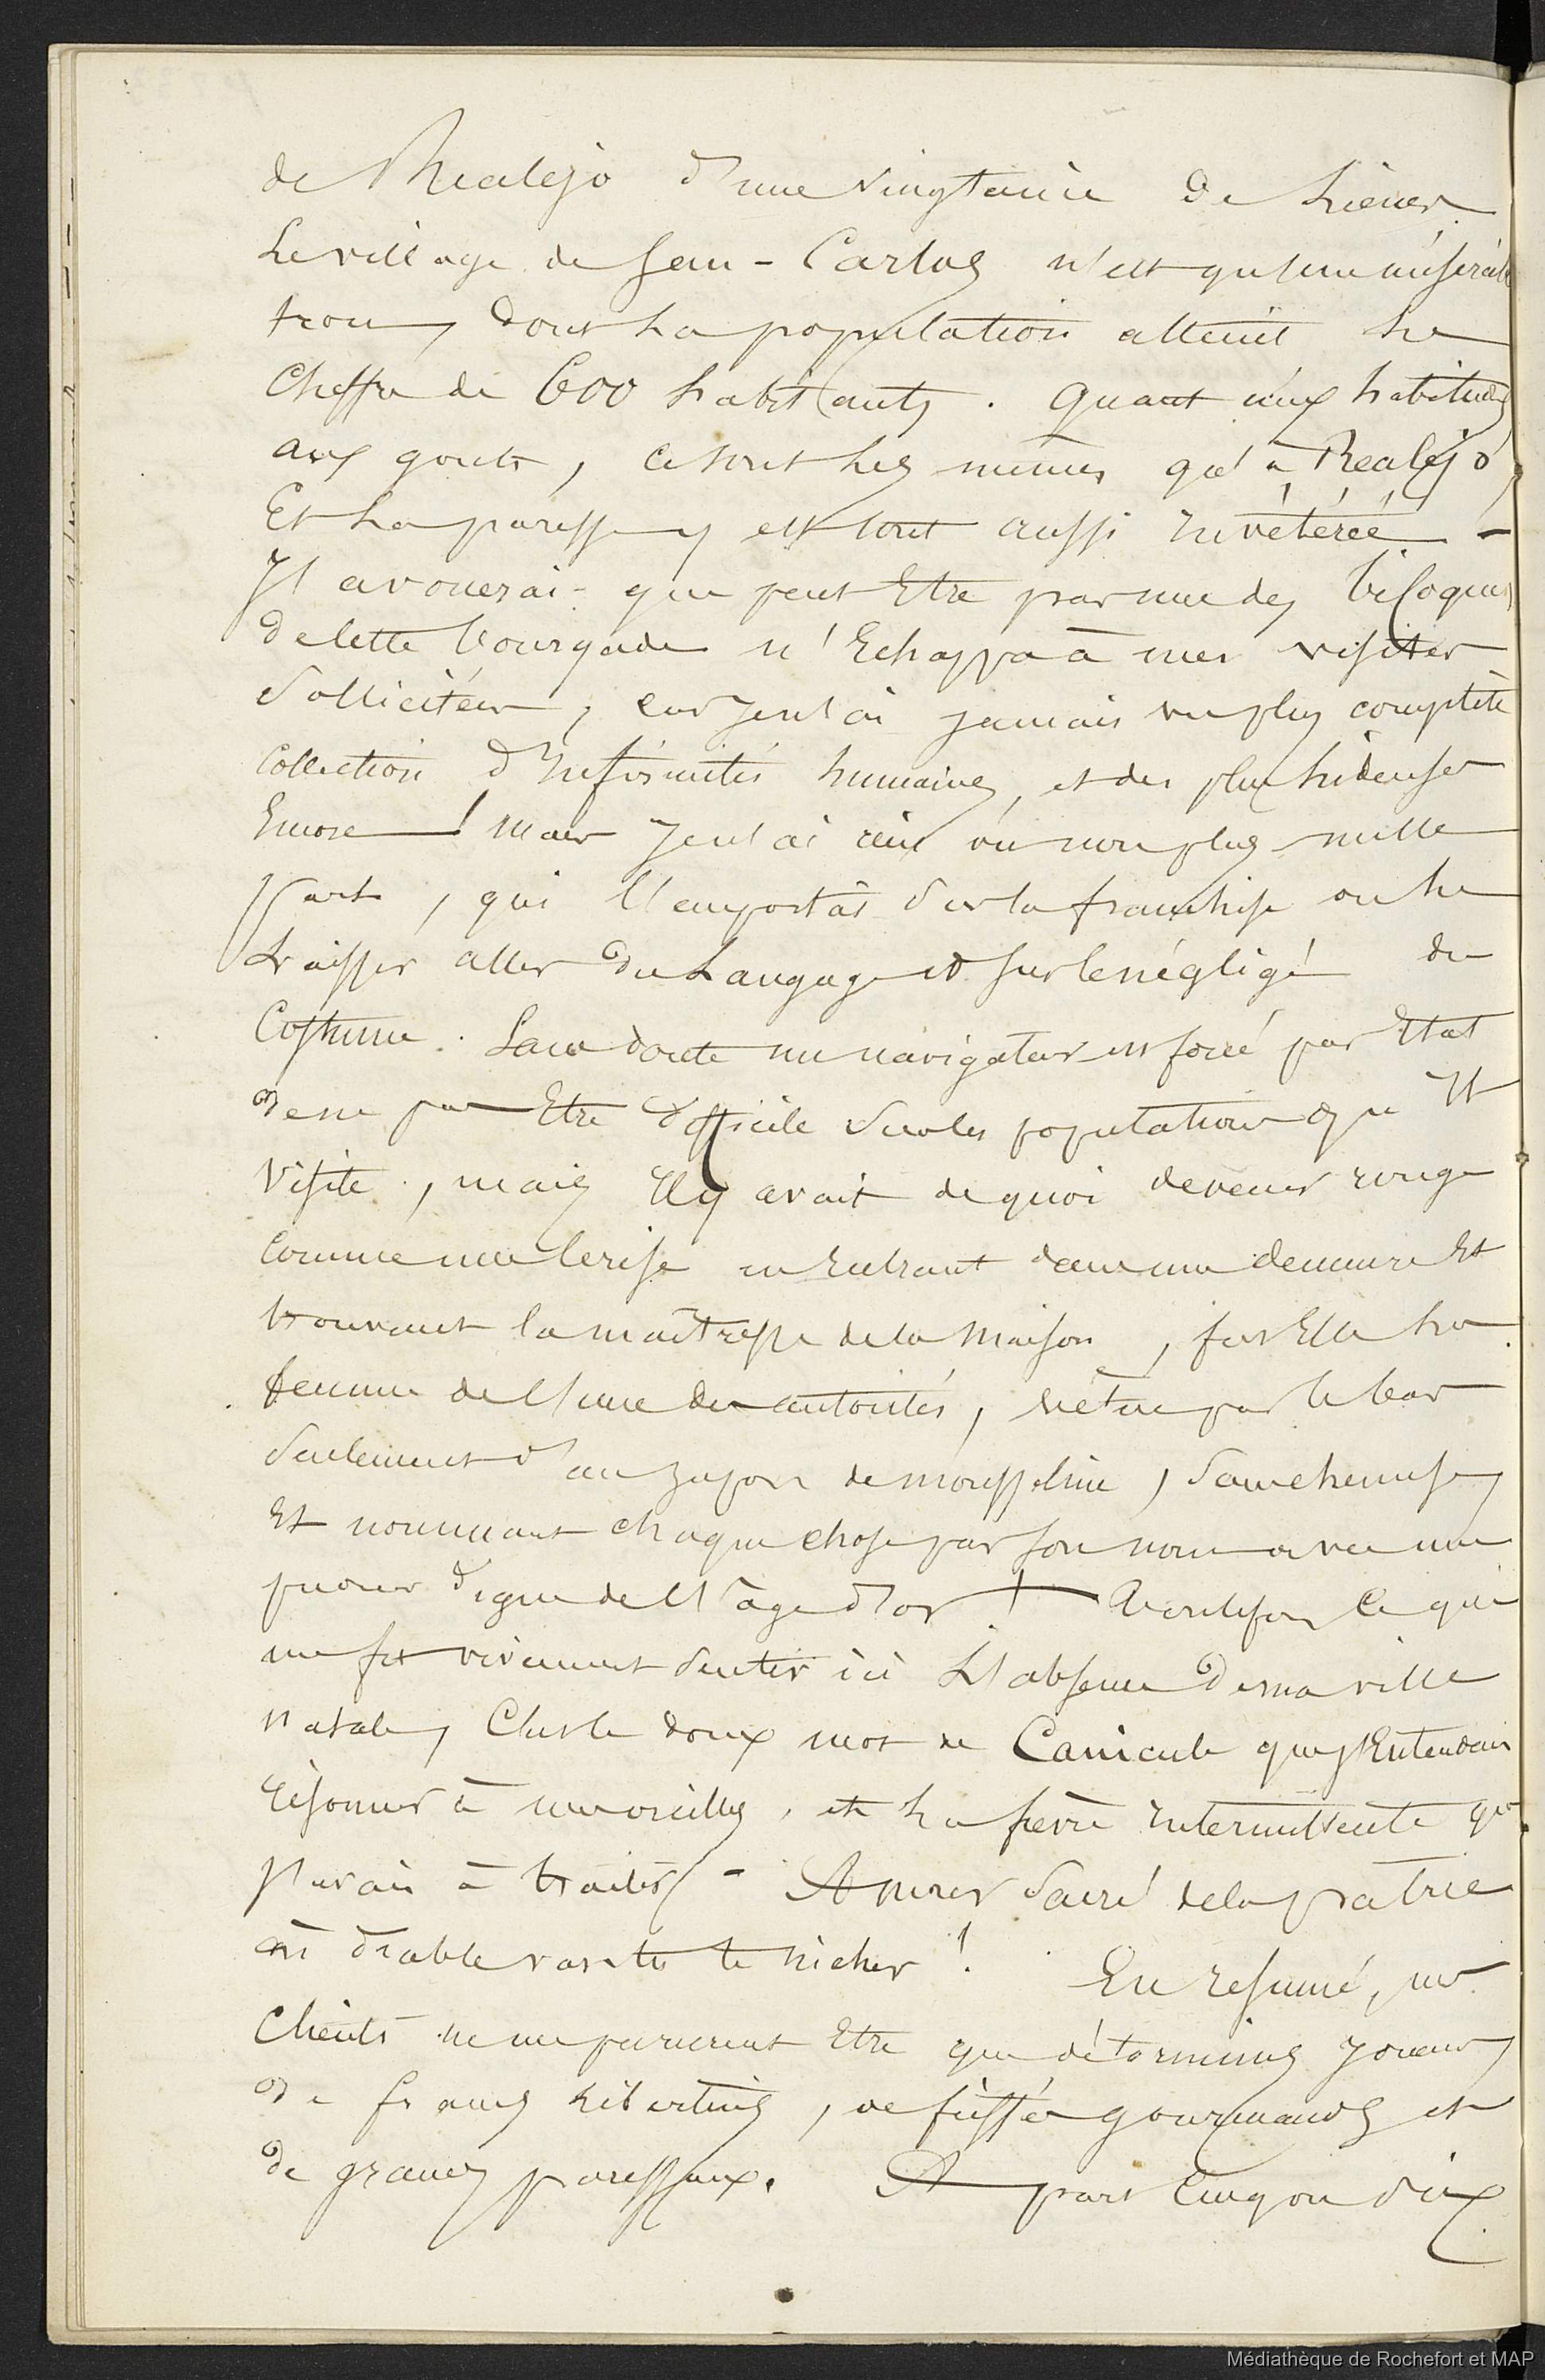 de Realejo d'une vingtaine de lieues
Le village de San-Carlos n'est qu'un misérable
trou, dont la population atteint le
Chiffre de 600 habitants. Quant aux habitudes
aux gouts, ce sont les mêmes qu'à Realejo,
Et la paresse y est tout aussi invétérée –
J'avouerai que peut Etre pas une des bicoques
de cette bourgade n'Echappa à mes visites
Solliciteur, car je n'ai jamais vu plus complète
Collection d'Infirmités humaines, et des plus hideuses
Encore ! mais Je n'ai rien vu non plus nulle
part, qui l'emportât sur la franchise ou le
Laisser aller du Langage et sur le négligé du
Costume. Sans doute un navigateur est forcé par Etat
de ne pas Etre difficile sur les populations qu'Il
Visite, mais Il y avait de quoi devenir rouge
Comme une Cerise en Entrant dans une demeure Et
trouvant la maîtresse de la Maison, fut Elle la
femme de l'une des autorités, vêtue par le bas
Seulement d'un jupon de mousseline, Sans chemise,
Et nommant chaque chose par son nom avec une
pudeur digne de l'âge d'or ! Toutefois Ce qui
me fit vivement Sentir ici L'absence de ma ville
natale, C'est le doux mot de Canicule que j'Entendais
résonner à mes oreilles, et la fièvre Intermittente que
J'avais à traiter – Amour Sacré de la patrie
où diable vas-tu te nicher ! En résumé, mes
Clients ne me parurent Etre que déterminés Joueurs,
De francs Libertins, de fieffés gourmands et
de grands paresseux. A part Cinq ou Six